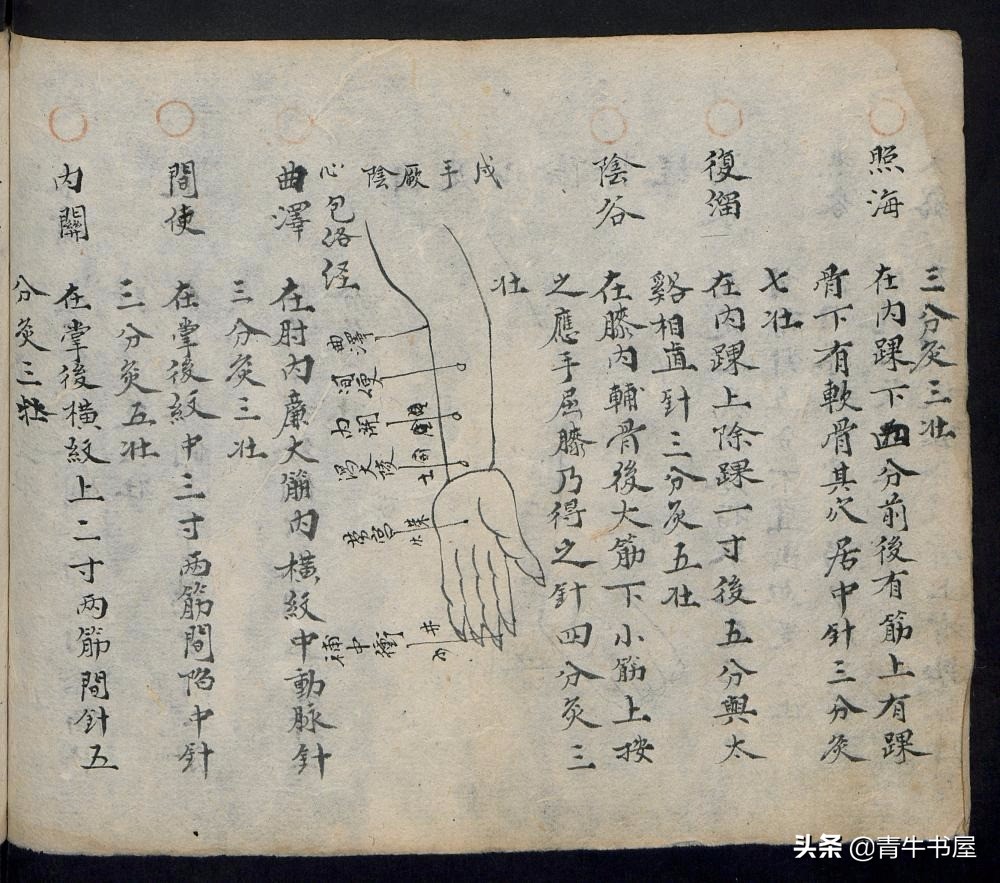 三分灸三壮
照海
在内踝下四分前後有筋上有踝
骨下有軟骨其穴居中針三分灸
七壮
復溜
在内踝上除踝一寸後五分與太
谿相直針三分灸五壮
陰谷
在膝内輔骨後大筋下小筋上按
之應手屈膝乃得之針四分灸三
壮
戌手厥陰
心包洛経
曲澤
間使
内関
大陵
土
労宮
荣火
中衝
井
曲澤
在肘内廉大筋内横紋中動脉針
三分灸三壮
間使
在掌後紋中三寸两筋間陷中針
三分灸五壮
内關
在掌後横紋上二寸两筋間針五
分灸三壮
头条 @青牛书屋